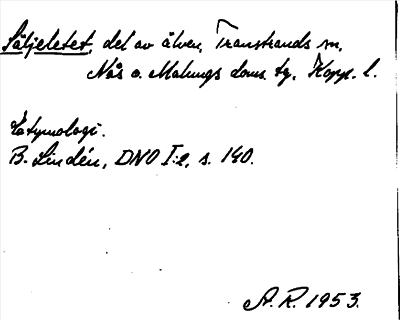 Säljeletet, del av älven, Transtrands sn,
Nås o. Malungs doms. tg, Kopp. l.
Etymologi.
B. Lindén, DNO I:2, s. 140.
A. R. 1953.